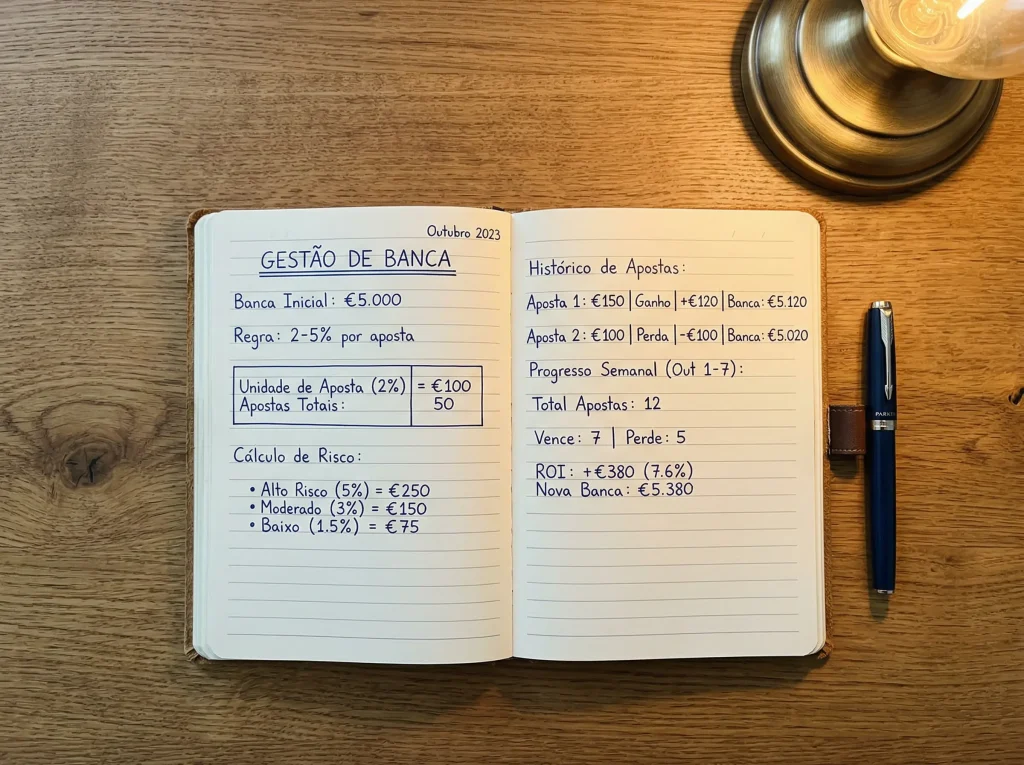 Outubro 2023
GESTÃO DE BANCA
Banca Inicial: €5.000
Regra: 2-5% por aposta
Unidade de Aposta (2%) = €100
Apostas Totais: 50
Cálculo de Risco:
• Alto Risco (5%) = €250
• Moderado (3%) = €150
• Baixo (1.5%) = €75
Histórico de Apostas:
Aposta 1: €150 | Ganho | +€120 | Banca: €5.120
Aposta 2: €100 | Perda | -€100 | Banca: €5.020
Progresso Semanal (Out 1-7):
Total Apostas: 12
Vence: 7 | Perde: 5
ROI: +€380 (7.6%)
Nova Banca: €5.380
PARKER